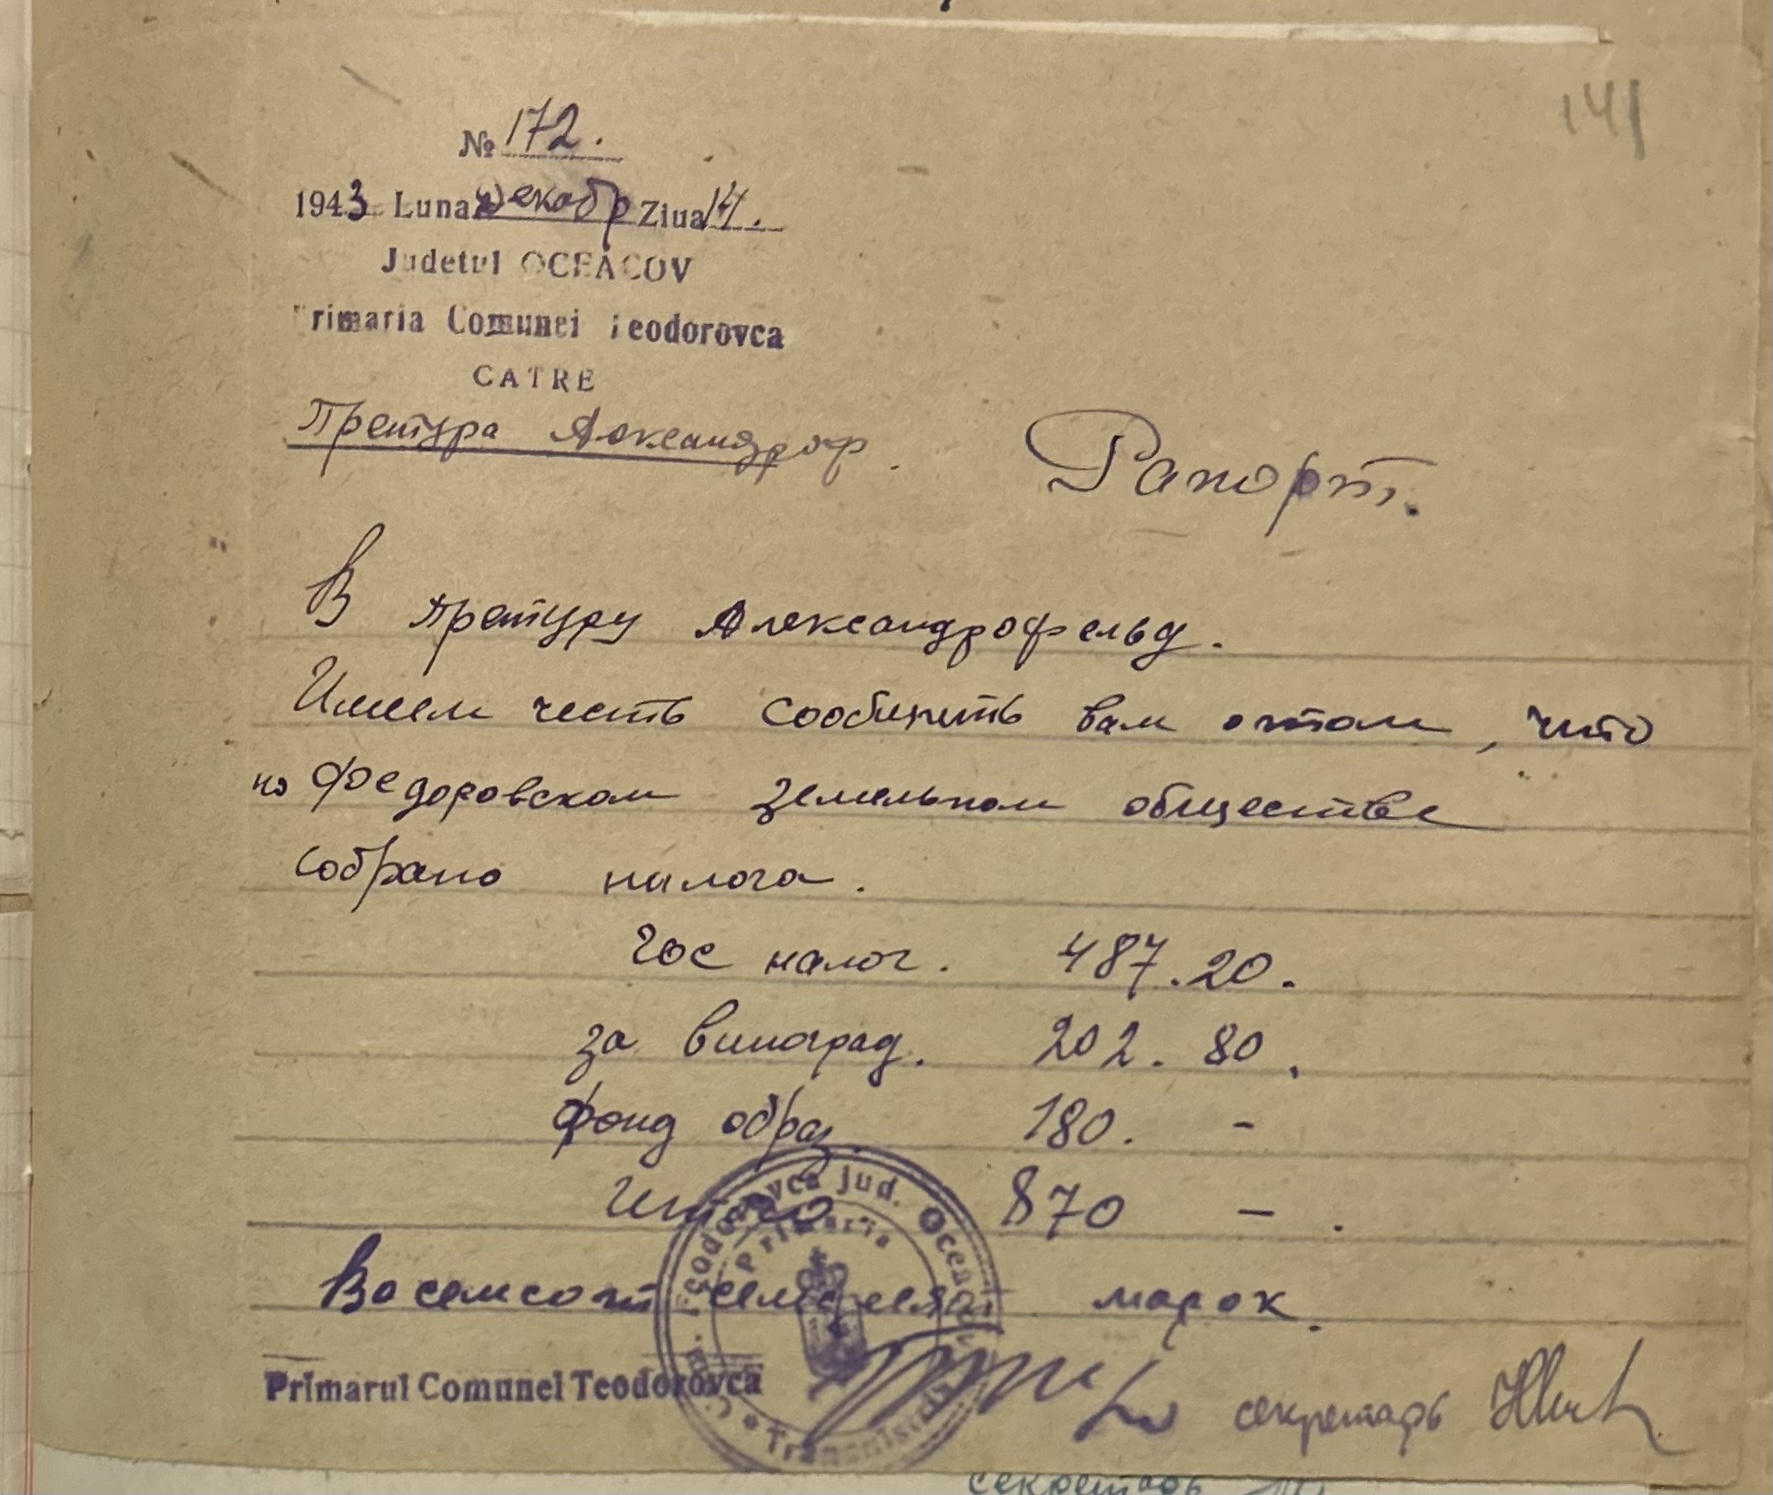 141
№ 172.
1943 Luna Декабр Ziua 14.
Judetul OCEACOV
Primaria Comunei Teodorovca
CATRE
Претура Александроф.
Рапорт.
В претуру Александрофельд.
Имеем честь сообщить вам о том, что
по Федоровском земельном обществе
собрано налога.
Гос налог. 487.20.
за виноград. 202. 80.
Фонд образ. 180. -
Итого 870 - .
Восемсот семдесят марок.
Primarul Comunei Teodorovca
Com. Teodorovca jud. Oceacov
Primaria
Transnistria
секретарь
секретарь